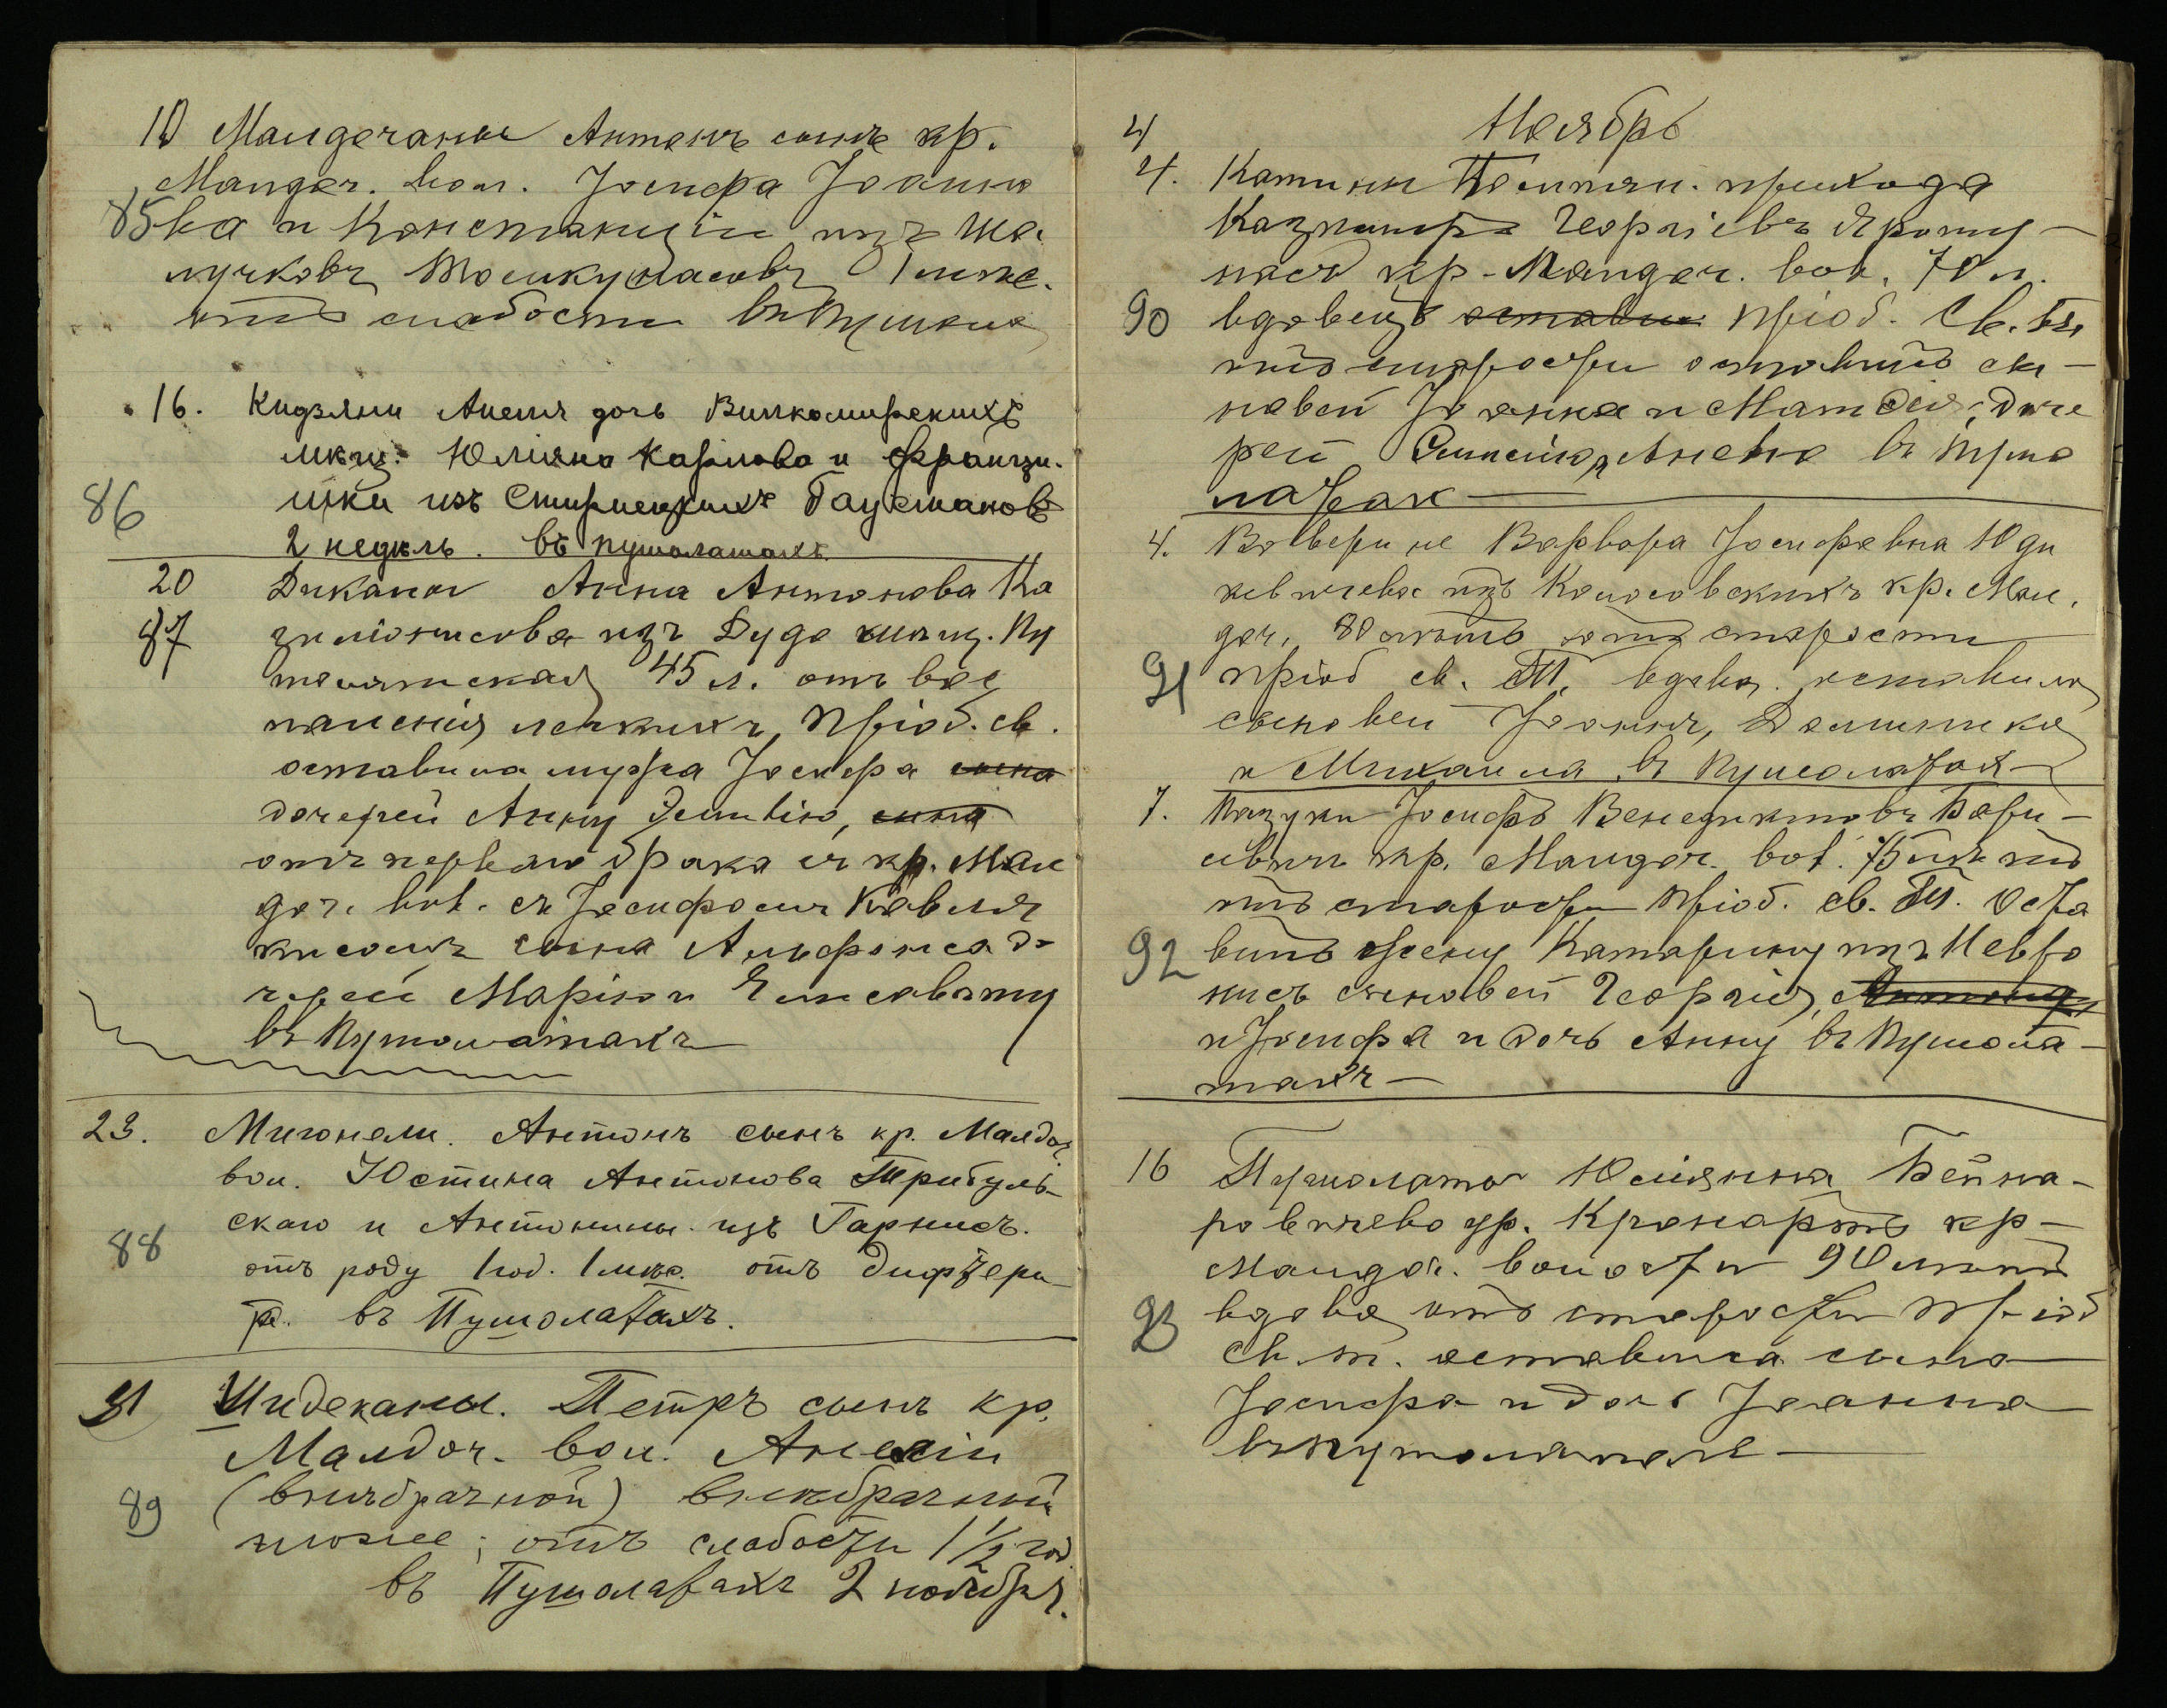 10 Малдечаны Антонъ сынъ кр.
Малдоч. вол. Іосифа Іоанно
85 ва и Констанціи изъ Ша
лучковъ 1 мѣс.
отъ слабости въ Пушол
16. Кидзяны Анеля дочь Вилкомирскихъ
мѣщ. Юліана Карлова и Францы-
86 шки изъ Стирнецкихъ Гаустановъ
2 недѣль. въ пушолатахъ.
20 Диканы Анна Антонова Ка
87 зилюнисова изъ Дуда мѣщ. Пу
шолятская 45 л. отъ вос
паленія легкихъ, пріоб. св.
оставила мужа Іосифа сына
дочерей Анну Эмилію, сына
отъ перваго брака съ кр. Мал
доч. вол. съ Іосифомъ Кавал
кисомъ сына Альфонса до
черей Марію и Елисавету
въ Пушолатахъ
23. Мигонели. Антонъ сынъ кр. Малдоч.
вол. Юстина Антонова Трибуль-
скаго и Антонины изъ Гарнисъ.
88 отъ роду 1 год. 1 мѣс. отъ дифтери
та. въ Пушолатахъ.
31 Индеканы. Петръ сынъ кр.
Малдоч. вол. Анеліи
89 (внѣбрачной) внѣбрачный
; отъ слабости 1 1/2 год.
въ Пушолатахъ 2 ноября.
4 Ноябрь
4. Катины прихода
Казиміръ Георгіевъ Яроту-
насъ кр. Малдоч. вол. 70 л.
90 вдовецъ оставил пріоб. Св. Т.
отъ старости оставилъ сы-
новей Іоанна и Матвія, доче
рей Анелю въ Пушо
латах
4. Воверине Варвара Іосифовна Юди
кевичева изъ Колосовскихъ кр. Мал.
доч. 80 лѣтъ отъ старости
91 пріоб св. Т. вдова. оставила
сыновей Іоанна, Доминика
и Михаила въ Пушолатах
7. Пазуки Іосифъ Венедиктовъ Бари-
севичъ кр. Малдоч. вол. 75 лѣтъ
отъ старости пріоб. св. Т. Оста
92 вилъ жену Катарину изъ Невро
нисъ сыновей Георгія, Антона
и Іосифа и дочь Анну въ Пушола-
тахъ
16 Пушолаты Юліанна Бейна-
ровичева ур. Кронартъ кр-
Малдоч. волости 90 лѣтъ
93 вдова отъ старости пріоб
св. т. оставила сына
Іосифа и дочь Іоанна
въ пушолатахъ